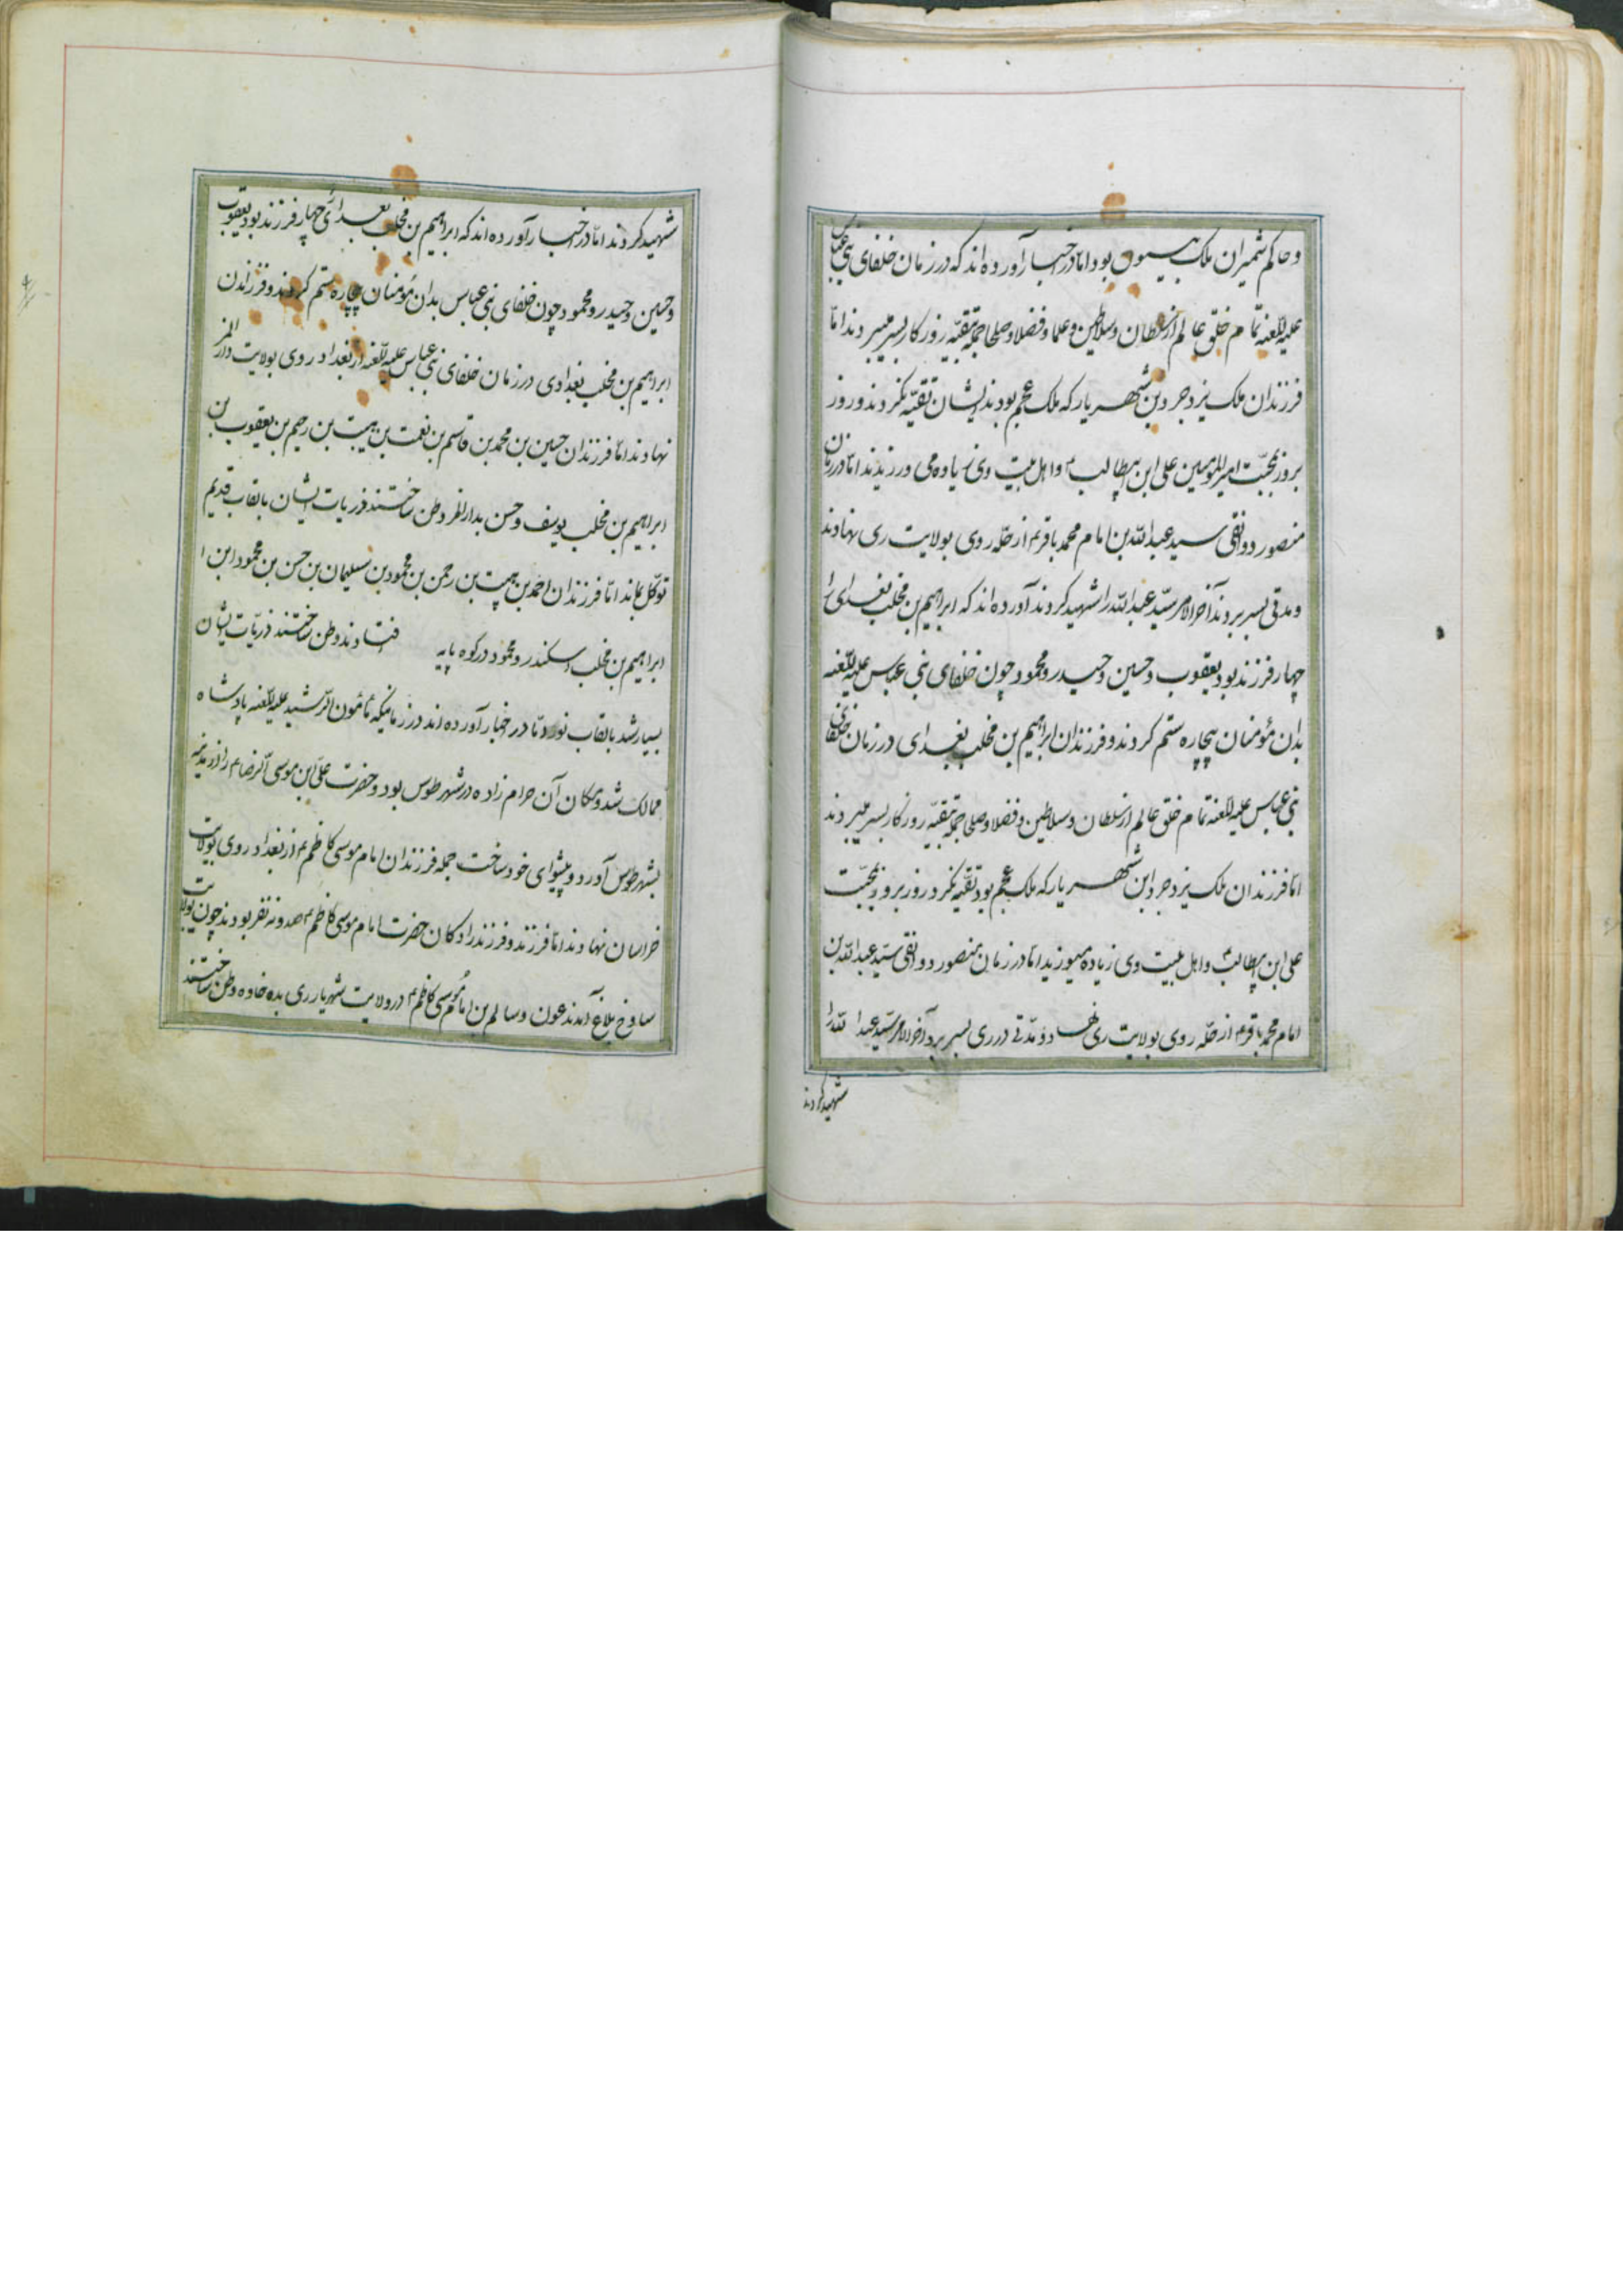 و حاکم شمیران ملک بیستون بود اما در اخبار آورده اند که در زمان خلفای بنی عباس
علیه اللعنه تمام خلق عالم از سلطان و سلاطین و علما و فضلا و صلحا جمله بتقیه روزکار بسر میبردند امّا
فرزندان ملک یزدجرد بن شهریار که ملک عجم بودند ایشان تقیّه نکردند و روز
بروز بمحبّت امیرالمومنین علی ابن ابیطالب ۴ و اهل بیت وی زیاده می ورزیدند امّا در زمان
منصور دوانقی سید عبدالله بن امام محمد باقر ۴ از حلّه روی بولایت ری نهادند
و مدتی بسر بردند آخرالامر سیّد عبدالله را شهید کردند آورده اند که ابراهیم بن مخلب بغدادی را
چهار فرزند بود یعقوب و حسین و حیدر و محمود چون خلفای بنی عباس علیه اللّعنه
بدان مؤمنان بیچاره ستم کردند و فرزندان ابراهیم بن مخلب بغدادی در زمان خلفای
بنی عباس علیه اللعنه تمام خلق عالم از سلطان و سلاطین و فضلا و صلحا جمله بتقیّه روزکار بسر میبردند
امّا فرزندان ملک یزدجرد ابن شهریار که ملک عجم بود تقیّه نکرد روز بروز بمحبّت
علی ابن ابیطالب ۴ و اهل بیت وی زیاده میورزید امّا در زمان منصور دوانقی سیّد عبدالله بن
امام محمد باقر ۴ از حلّه روی بولایت ری نهاد و مدّتی در ری بسر برد آخرالامر سیّد عبدالله را
شهید کردند
شهید کردند امّا در اخبار آورده اند که ابراهیم بن مخلب بغدادی را چهار فرزند بود یعقوب
و حسین و حیدر و محمود چون خلفای بنی عباس بدان مؤمنان بیچاره ستم کردند و فرزندان
ابراهیم بن مخلب بغدادی در زمان خلفای بنی عباس علیه اللّعنه از بغداد روی بولایت دارالمرز
نهادند امّا فرزندان حسین بن محمد بن قاسم بن نعمت بن هیبت بن رحیم بن یعقوب بن
ابراهیم بن مخلب یوسف و حسن بدارالمرز وطن ساختند ذریات ایشان بالقاب قدیم
توکّل بماند امّا فرزندان احمد بن هیبت بن رحمن بن محمود بن سلیمان بن حسن بن محمود ابن
ابراهیم بن مخلب اسکندر و محمود در کوه پایه افتادند وطن ساختند ذریّات ایشان
بسیار شد بالقاب نور امّا در اخبار آورده اند در زمانیکه مأمون الرّشید علیه اللّعنه پادشاه
ممالک شد و مکان آن حرام زاده در شهر طوس بود و حضرت علی ابن موسی الرّضا ۴ را از مدینه
بشهر طوس آورد و پیشوای خود ساخت جمله فرزندان امام موسی کاظم ۴ از بغداد روی بولایت
خراسان نهادند امّا فرزند و فرزندزادکان حضرت امام موسی کاظم ۴ صد و نه نفر بودند چون بولایت
ساوخ بلاغ آمدند عون و سالم بن امام موسی کاظم ۴ در ولایت شهریار ری بده خاوه وطن ساختند